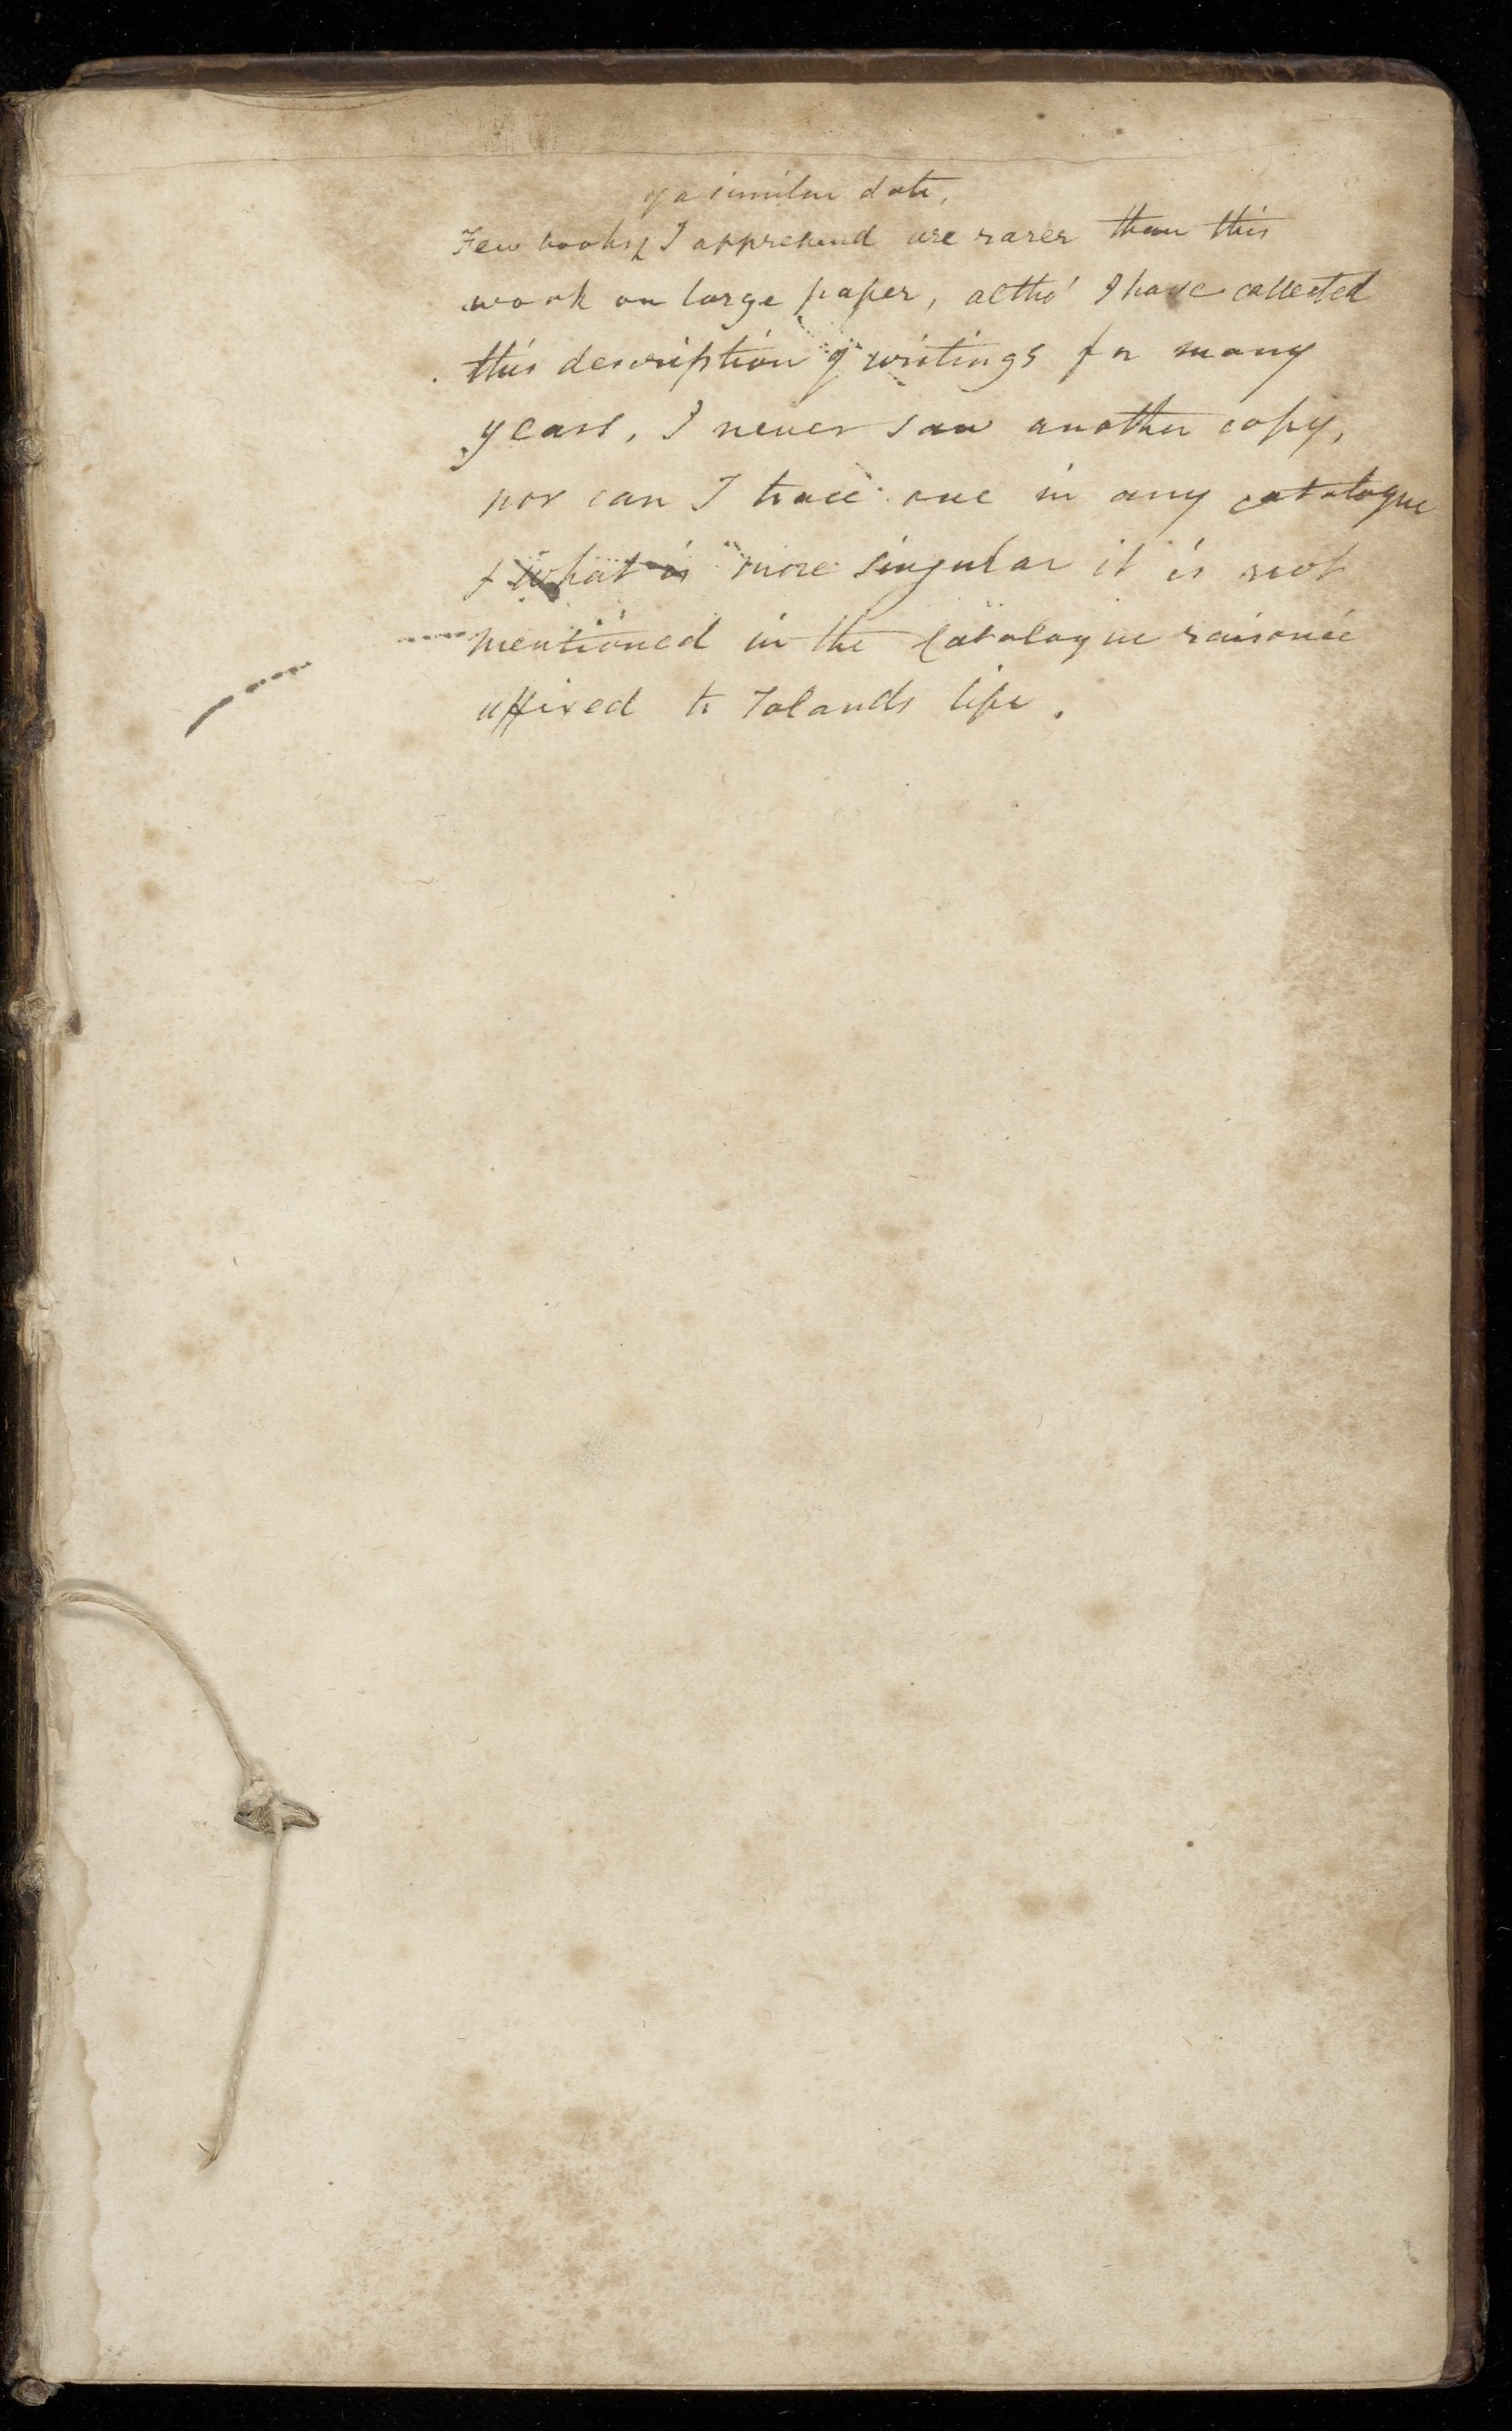 of a similar date,
Few books, I apprehend are rarer than this
work on large paper, altho' I have collected
this description of writings for many
years, I never saw another copy,
nor can I trace one in any catalogue
& what is more singular it is not
mentioned in the Catalogue raisonée
affixed to Tolands life.